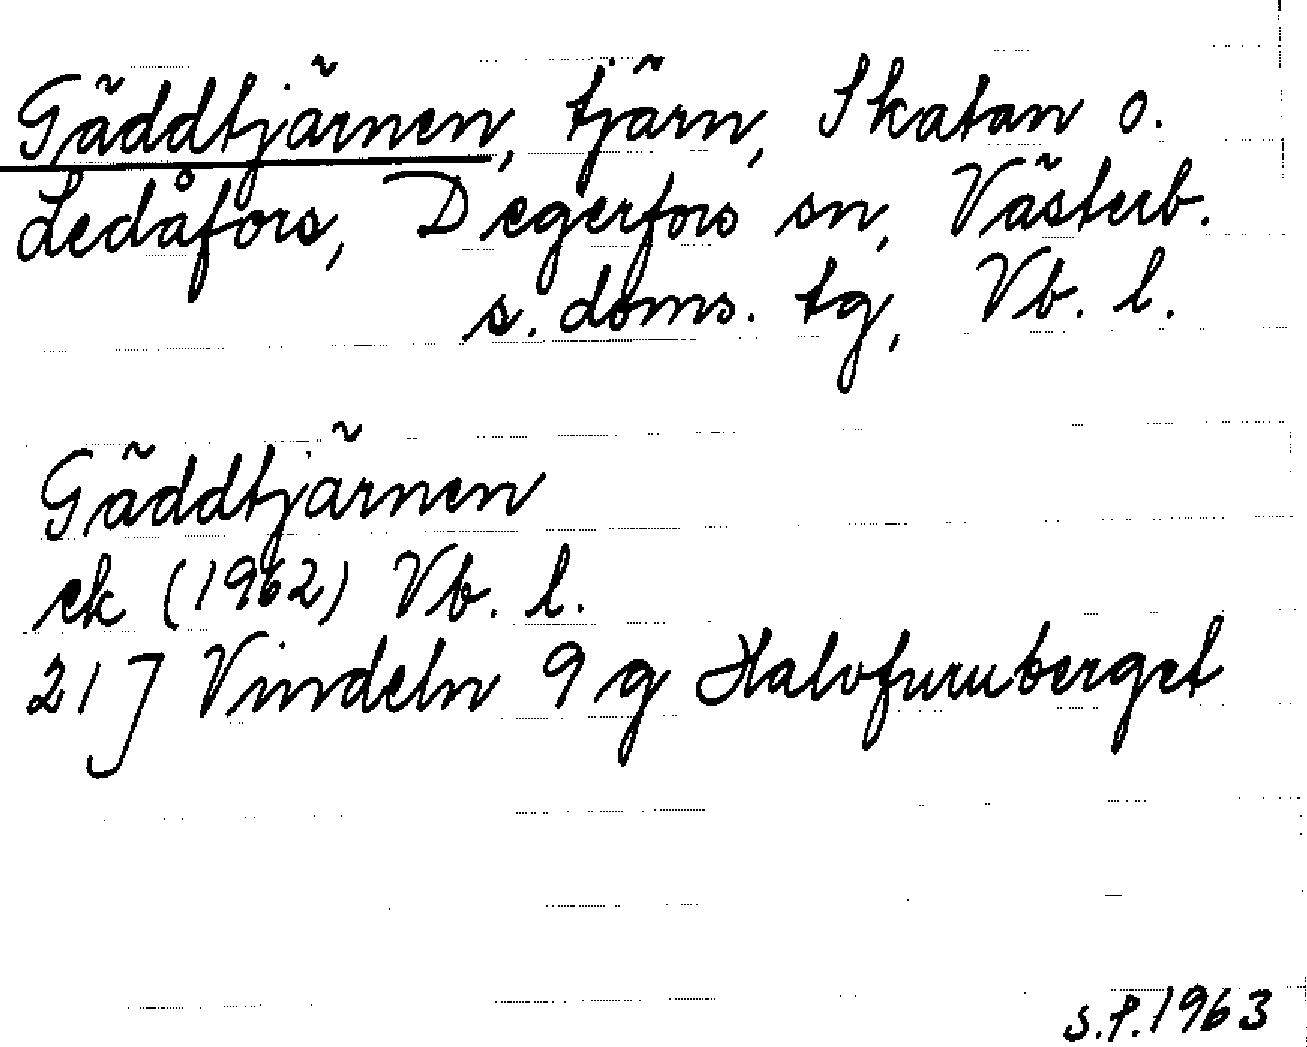 Gäddtjärnen, tjärn, Skatan o.
Ledåfors, Degerfors sn, Västerb.
s. doms. tg, Vb. l.
Gäddtjärnen
ek (1962) Vb. l.
21 J Vindeln 9 g Halvfuruberget
s.f. 1963